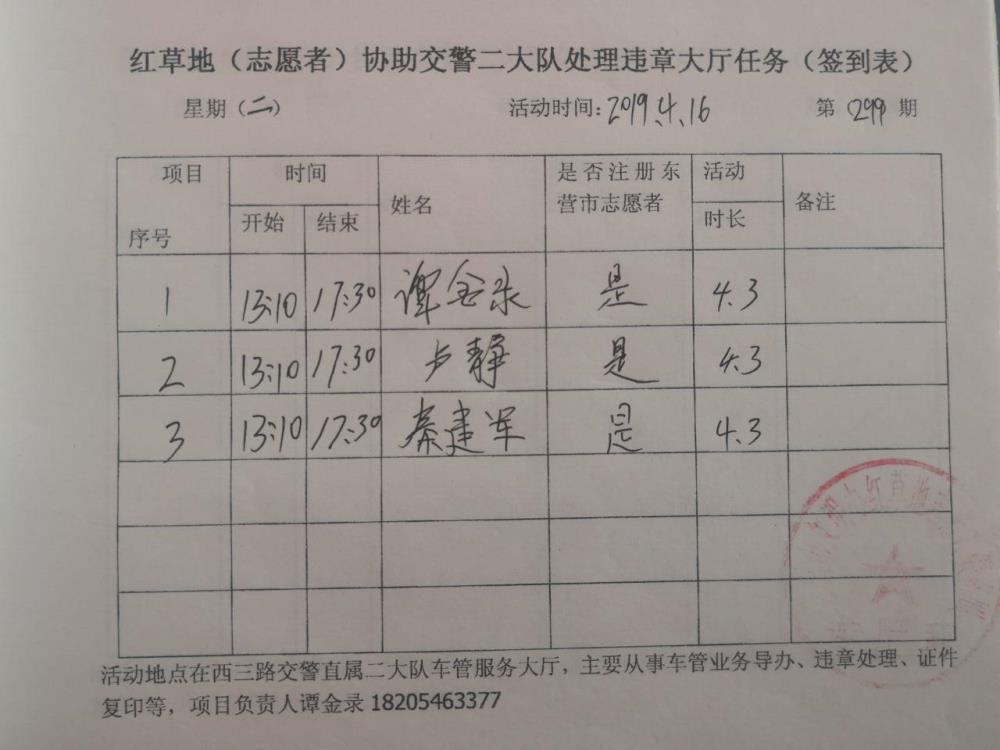 红草地（志愿者）协助交警二大队处理违章大厅任务（签到表）
星期（二） 活动时间：2019.4.16 第（299）期
项目 时间 姓名 是否注册东营市志愿者 活动时长 备注
序号 开始 结束
1 13:10 17:30 谭金录 是 4.3
2 13:10 17:30 卢静 是 4.3
3 13:10 17:30 秦建军 是 4.3
活动地点在西三路交警直属二大队车管服务大厅，主要从事车管业务导办、违章处理、证件
复印等，项目负责人谭金录 18205463377